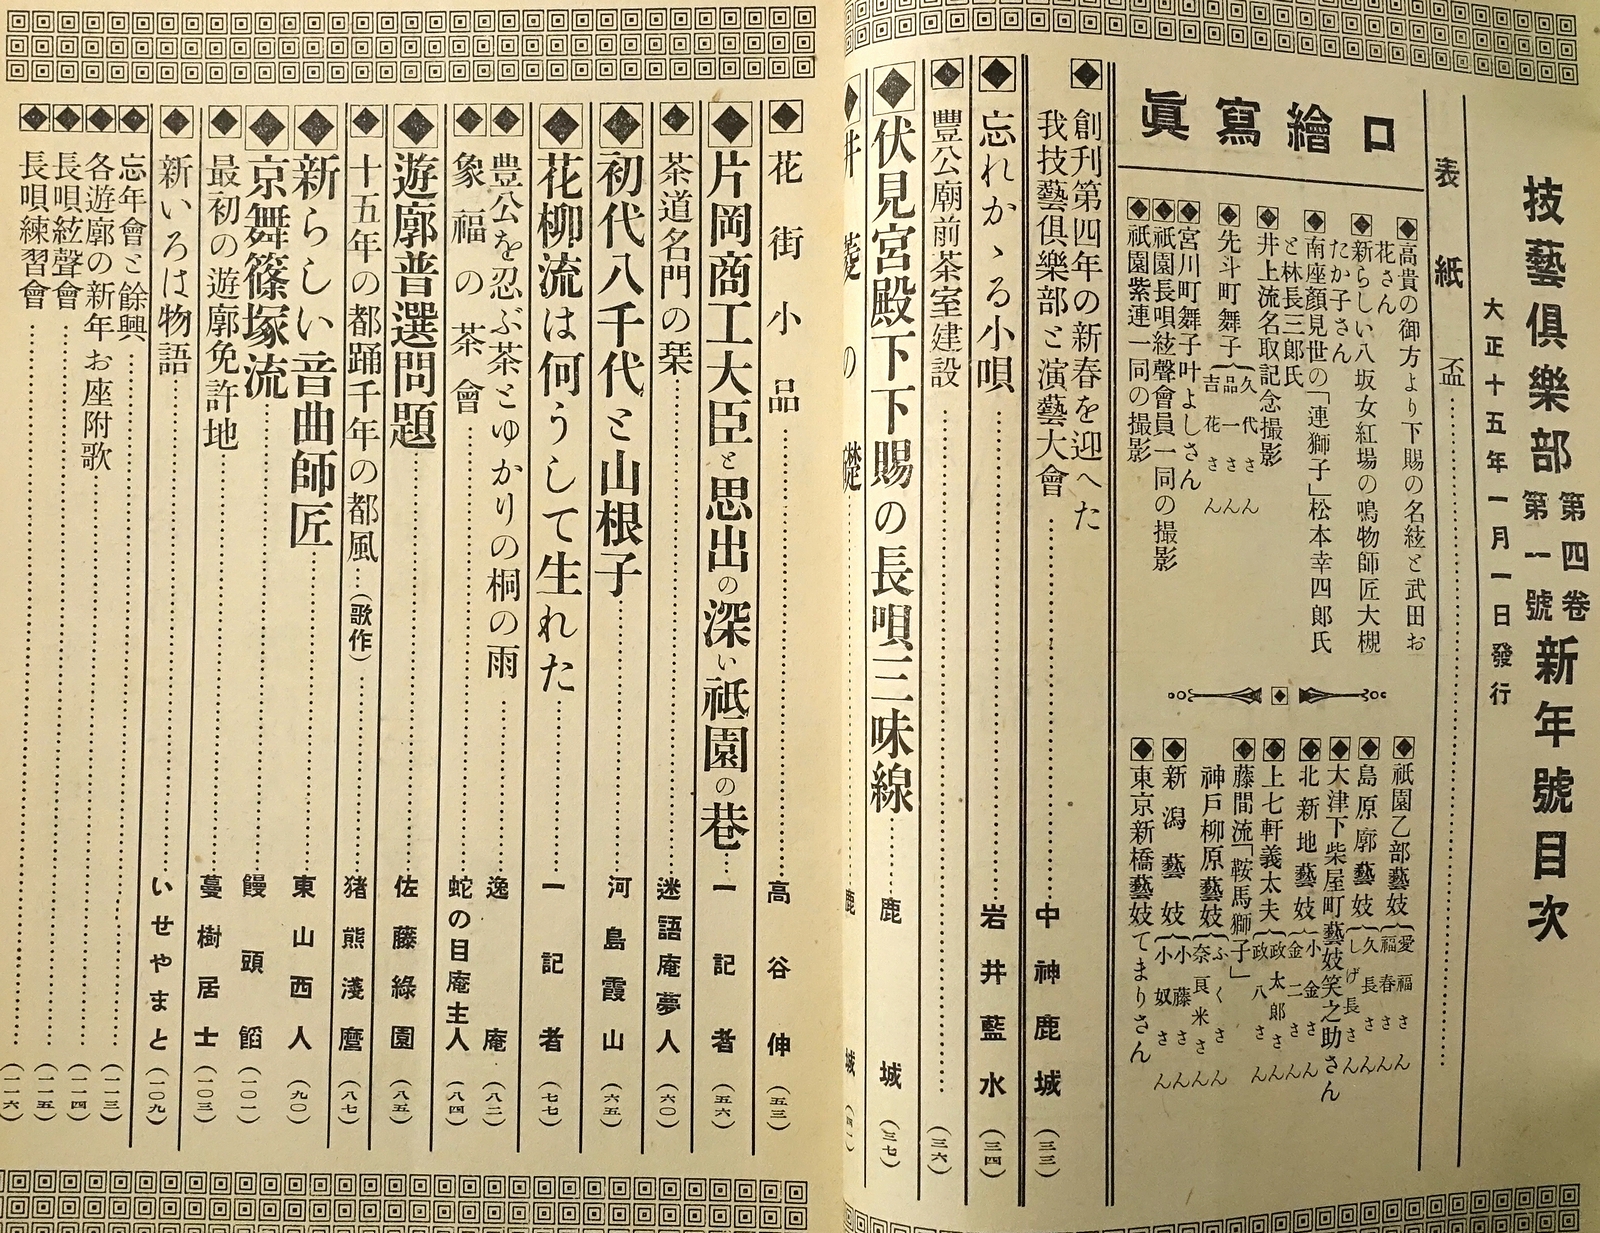 技藝俱樂部 第四卷 第一號 新年號目次
大正十五年一月一日發行
表紙 盃
口繪寫眞
高貴の御方より下賜の名絃と武田お
花さん
新らしい八坂女紅場の鳴物師匠大槻
たか子さん
南座顔見世の「連獅子」松本幸四郎氏
と林長三郎氏
井上流名取記念撮影
先斗町舞子 久代さん 品一さん 吉花さん
宮川町舞子叶よしさん
祇園長唄絃聲會員一同の撮影
祇園紫連一同の撮影
祇園乙部藝妓 愛福さん 福春さん
島原廓藝妓 久長さん しげ長さん
大津下柴屋町藝妓笑之助さん
北新地藝妓 小金さん 金二さん
上七軒義太夫 政太郎さん 政八さん
藤間流「鞍馬獅子」
神戸柳原藝妓 ふくさん 奈良米さん
新潟藝妓 小藤さん 小奴さん
東京新橋藝妓てまりさん
創刊第四年の新春を迎へた
我技藝俱樂部と演藝大會 中神鹿城 (三三)
忘れかゝる小唄 岩井藍水 (三四)
豐公廟前茶室建設 (三六)
伏見宮殿下下賜の長唄三味線 鹿城 (三七)
井菱の礎 鹿城 (四一)
花街小品 高谷伸 (五三)
片岡商工大臣と思出の深い祇園の巷 一記者 (五六)
茶道名門の栞 迷語庵夢人 (六〇)
初代八千代と山根子 河島霞山 (六五)
花柳流は何うして生れた 一記者 (七七)
豊公を忍ぶ茶とゆかりの桐の雨 逸庵 (八二)
象福の茶會 蛇の目庵主人 (八四)
遊廓普選問題 佐藤綠園 (八五)
十五年の都踊千年の都風 (歌作) 猪熊淺麿 (八七)
新らしい音曲師匠 東山西人 (九〇)
京舞篠塚流 饅頭餡 (一〇一)
最初の遊廓免許地 蔓樹居士 (一〇三)
新いろは物語 いせやまと (一〇九)
忘年會と餘興 (一一三)
各遊廓の新年お座附歌 (一一四)
長唄絃聲會 (一一五)
長唄練習會 (一一六)